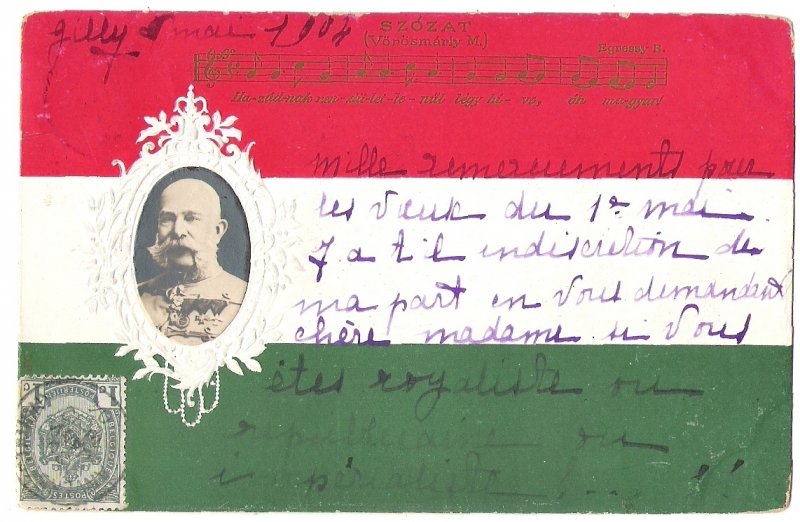 gilly 5 mai 1904
SZÓZAT
(Vörösmárly M.)
Egressy B.
Ha-zád-nak ren-dü-let-le-nül légy hi-ve, óh ma-gyar!
mille remerciements pour
les vœux du 1er mai
Y a t'il indiscretion de
ma part en vous demandant
chère madame si vous
êtes royaliste ou
republicaine ou
impérialiste ! . . . !
1